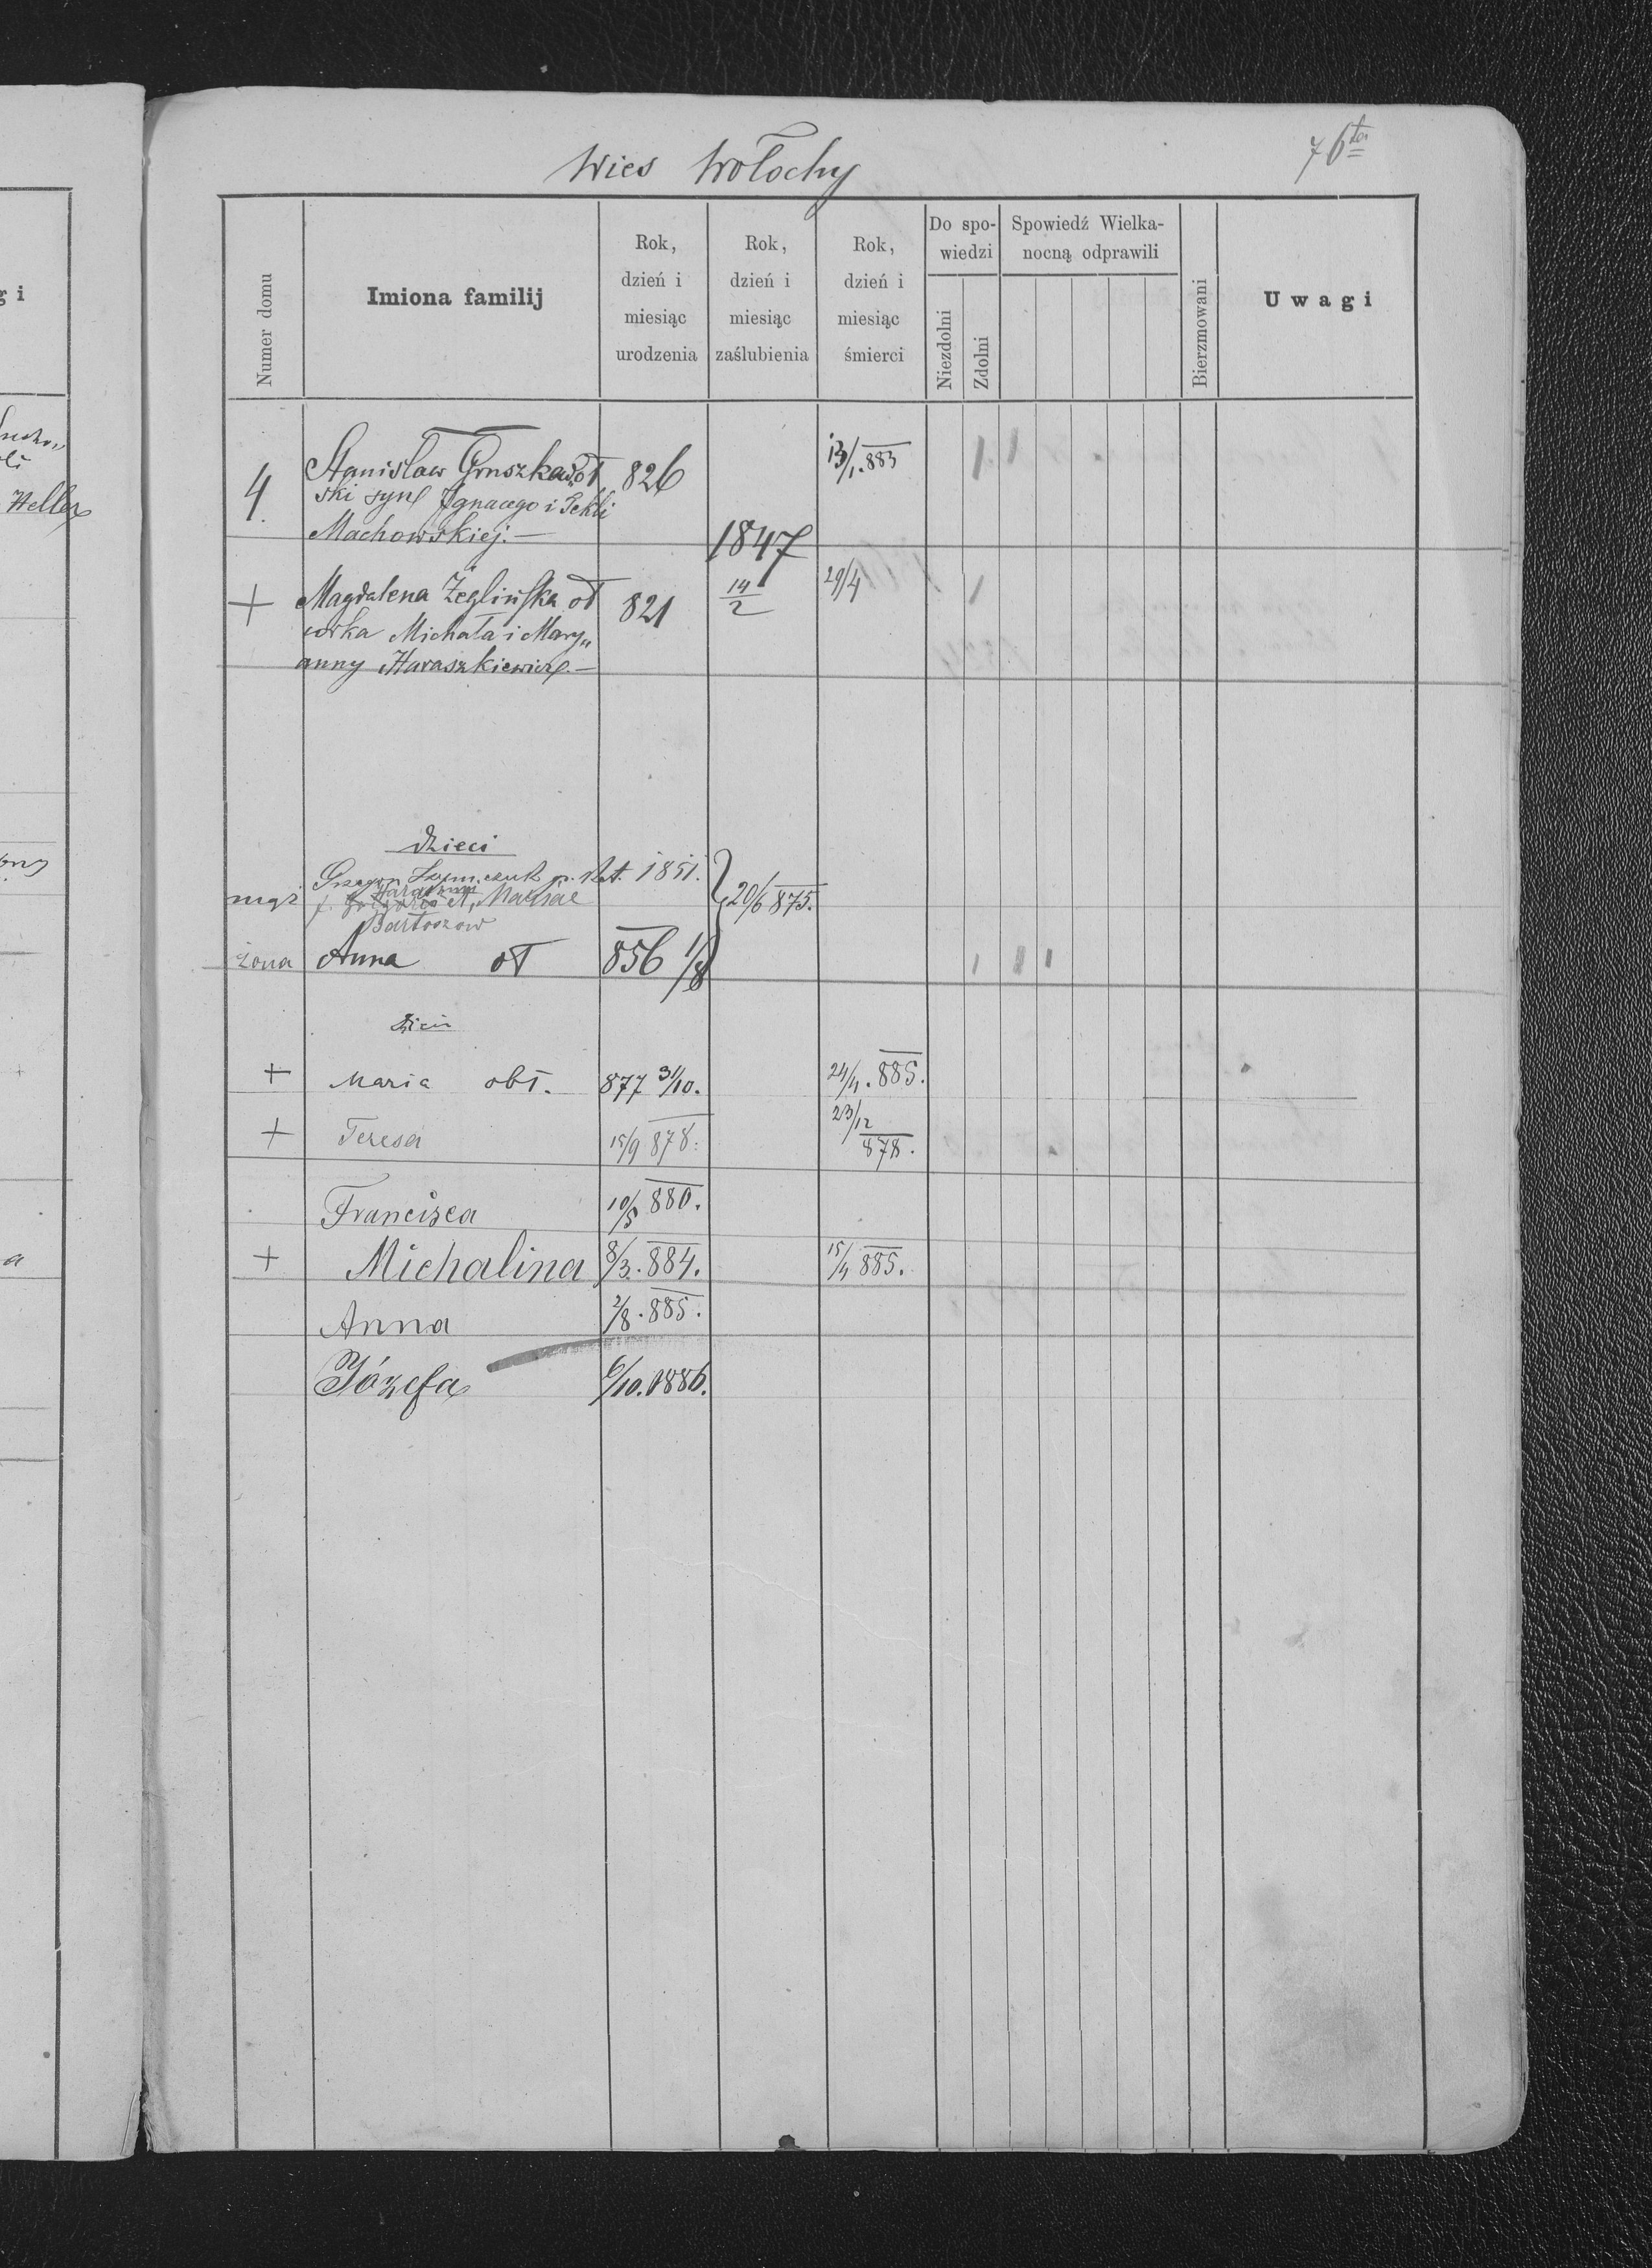 Wies Wołochy
76ta
Numer domu
Imiona familij
Rok, dzień i miesiąc urodzenia
Rok, dzień i miesiąc zaślubienia
Rok, dzień i miesiąc śmierci
Do spo-
wiedzi
Niezdolni
Zdolni
Spowiedź Wielka-
nocną odprawili
Bierzmowani
Uwagi
g i
Heller
4. Stanisław Gruszkow oł 826 13/1.883 1 1
ski syn Ignacego i Tekli
Machowskiej.—
1847
+ Magdalena Żeglińska oł 821 14/2 29/4 1
corka Michała i Mary„
anny Haraszkiewicz.—
dzieci
Grzegorz r. lat. 1851.
mąż f. et Mariae 20/6 875.
Bartoszow
żona Anna oł 856 1/8 1 1 1
dzieci
+ Maria obł. 877 31/10. 24/4.885.
+ Teresa 15/9 878. 23/12
878.
Francisca 10/5 880.
+ Michalina 8/3.884. 15/4 885.
Anna 2/8.885.
Józefa 6/10.1886.